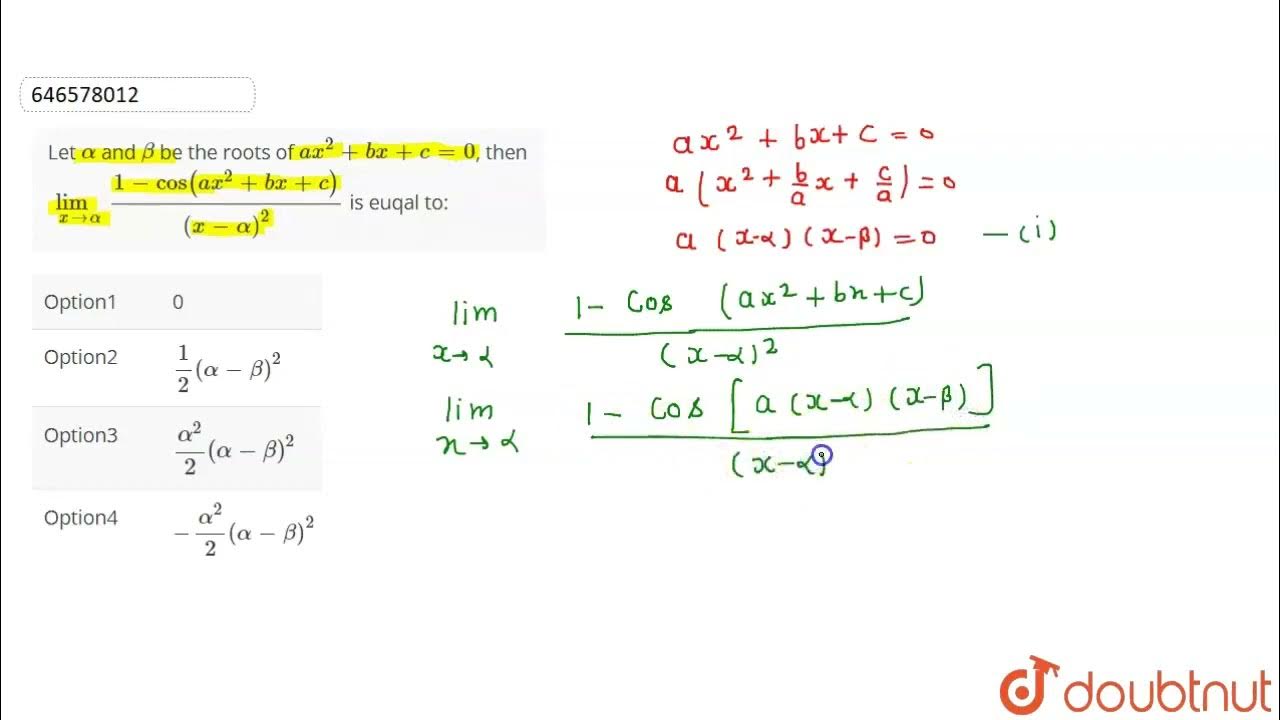 646578012
Let α and β be the roots of ax² + bx + c = 0, then
lim x→α (1 − cos(ax² + bx + c)) / (x − α)² is euqal to:
Option1 0
Option2 1/2 (α − β)²
Option3 α²/2 (α − β)²
Option4 −α²/2 (α − β)²
ax² + bx + c = 0
a (x² + b/a x + c/a) = 0
a (x-α) (x-β) = 0 — (i)
lim x→α 1 - Cos (ax² + bx + c) / (x-α)²
lim x→α 1 - Cos [a (x-α) (x-β)] / (x-α)
doubtnut